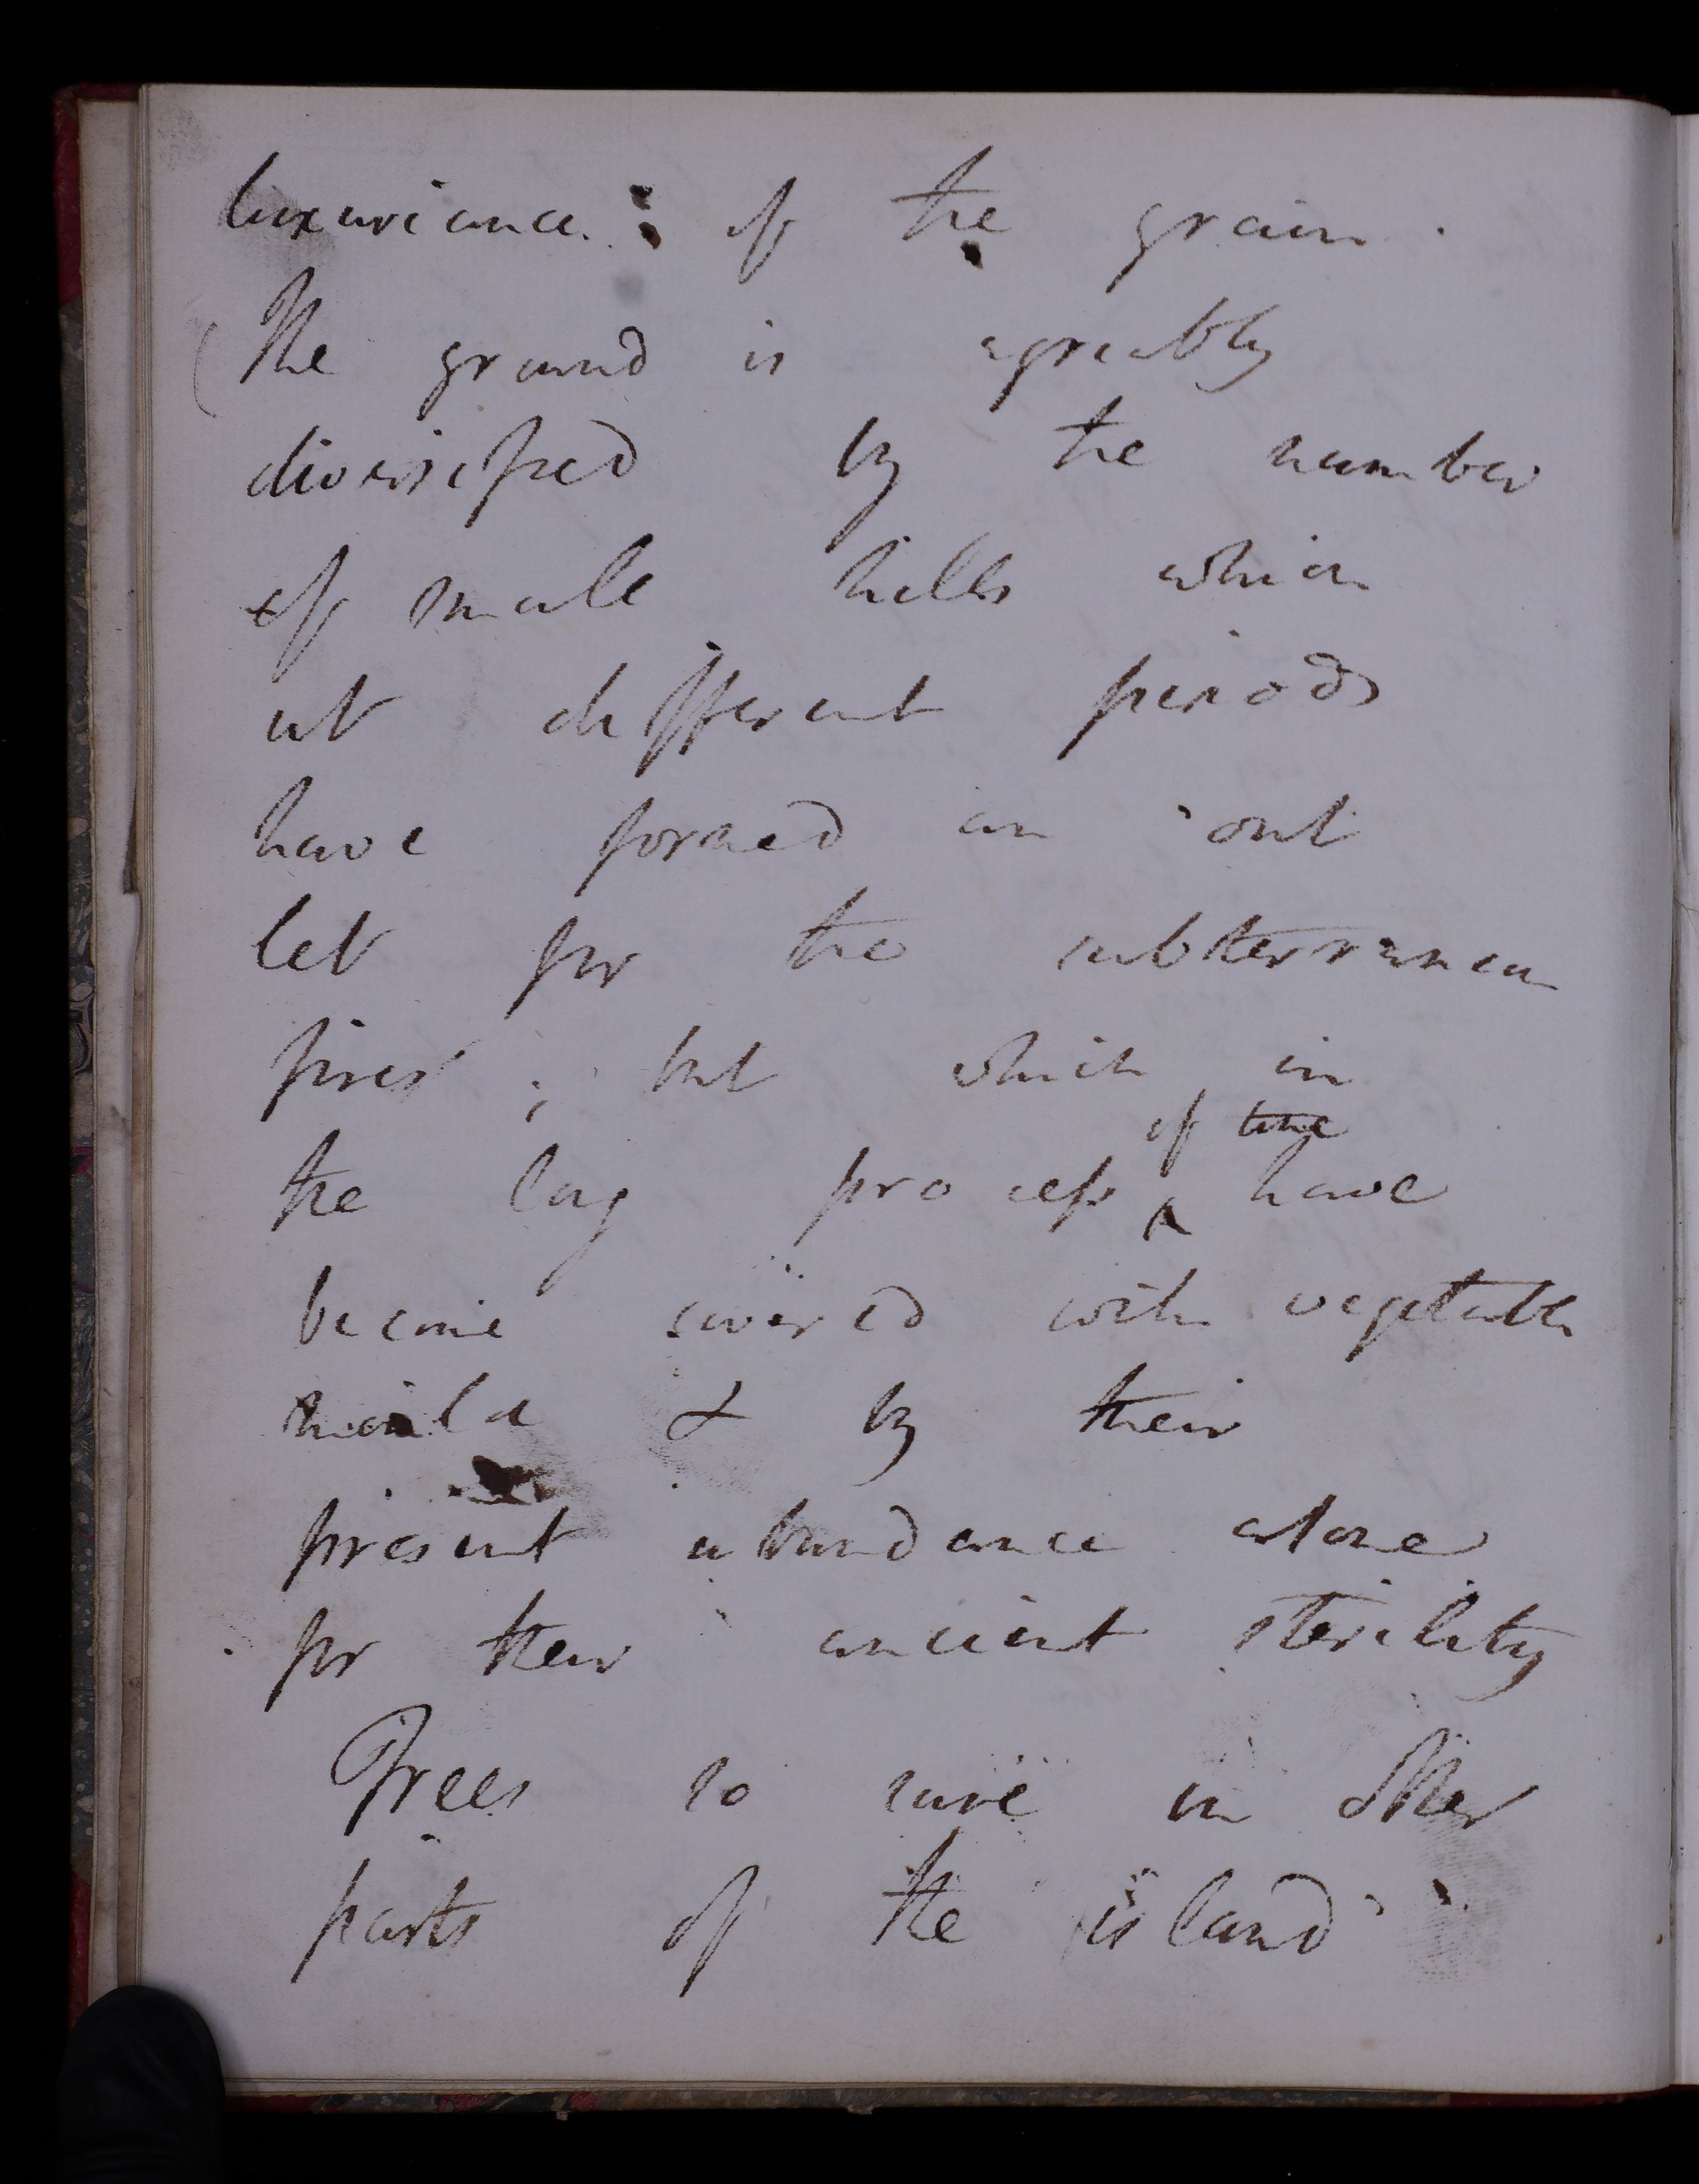 luxuriance of the grain.
The ground is agreably
diversified by the number
of small hills which
at different periods
have formed an out
let for the subterranean
fires; but which in
the long process of time have
become covered with vegetable
mould & by their
present abundance atone
for their ancient sterility
Trees so rare in other
parts of the island